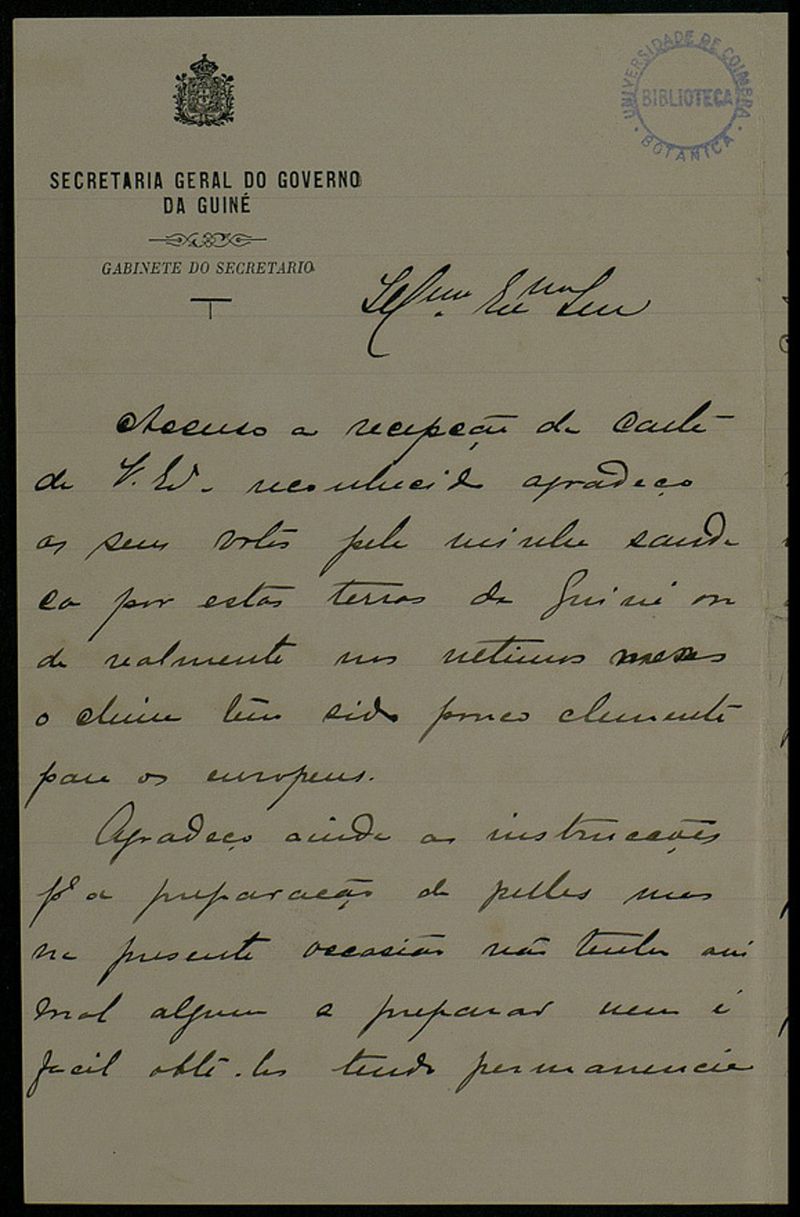 UNIVERSIDADE DE COIMBRA
BIBLIOTECA
BOTANICA
SECRETARIA GERAL DO GOVERNO
DA GUINÉ
GABINETE DO SECRETARIO
Ill.mo Exmo Senr
Accuso a recepção da carta
de V. Exa. reconhecido agradeço
os seus votos pela minha saude
ca por estas terras da Guiné on
de realmente nos ultimos meses
o clima tem sido pouco clemente
para os europeus.
Agradeço ainda as instrucções
pa a preparação de pelles mas
na presente occasião não tenho ani
mal algum a preparar nem é
facil obtê-los tendo permanencia